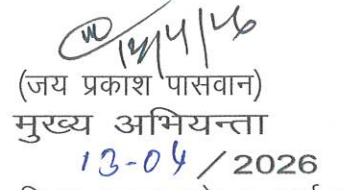 13/4/26
(जय प्रकाश पासवान)
मुख्य अभियन्ता
13-04/2026